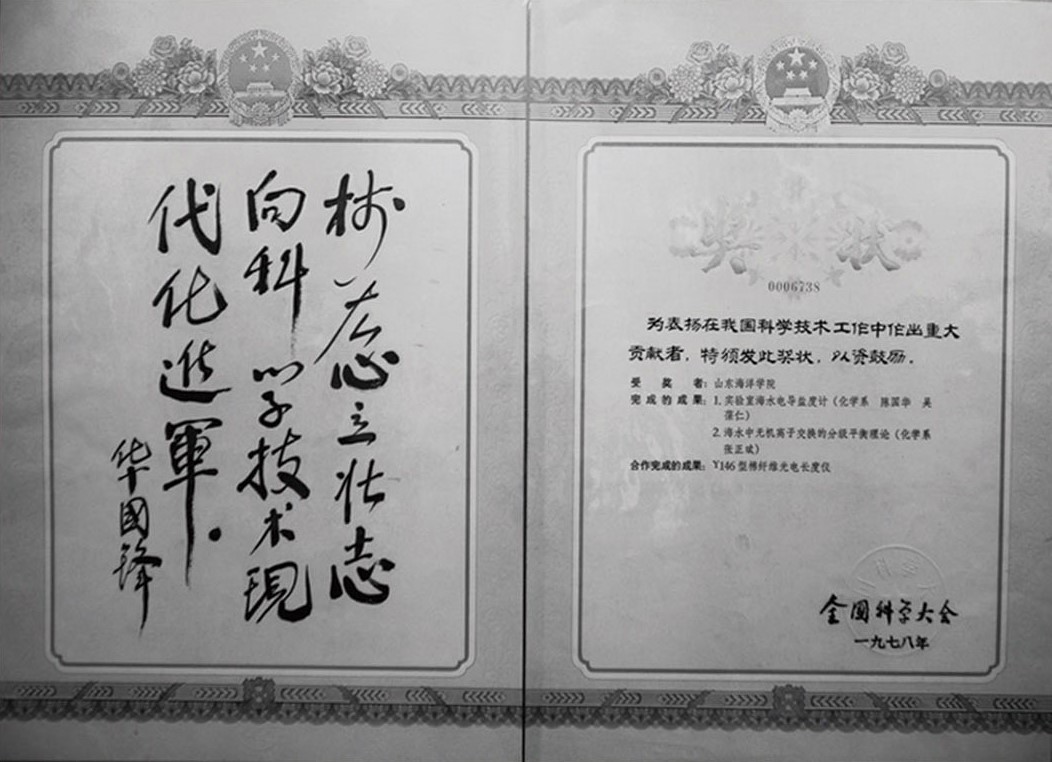 树雄心立壮志
向科学技术現
代化進軍。
华國锋
奖状
0006738
为表扬在我国科学技术工作中作出重大
贡献者，特颁发此奖状，以资鼓励。
受奖者：山东海洋学院
完成的成果：1.实验室海水电导盐度计（化学系 陈国华 吴
葆仁）
2.海水中无机离子交换的分级平衡理论（化学系
张正斌）
合作完成的成果：Y146型棉纤维光电长度仪
全国科学大会
一九七八年